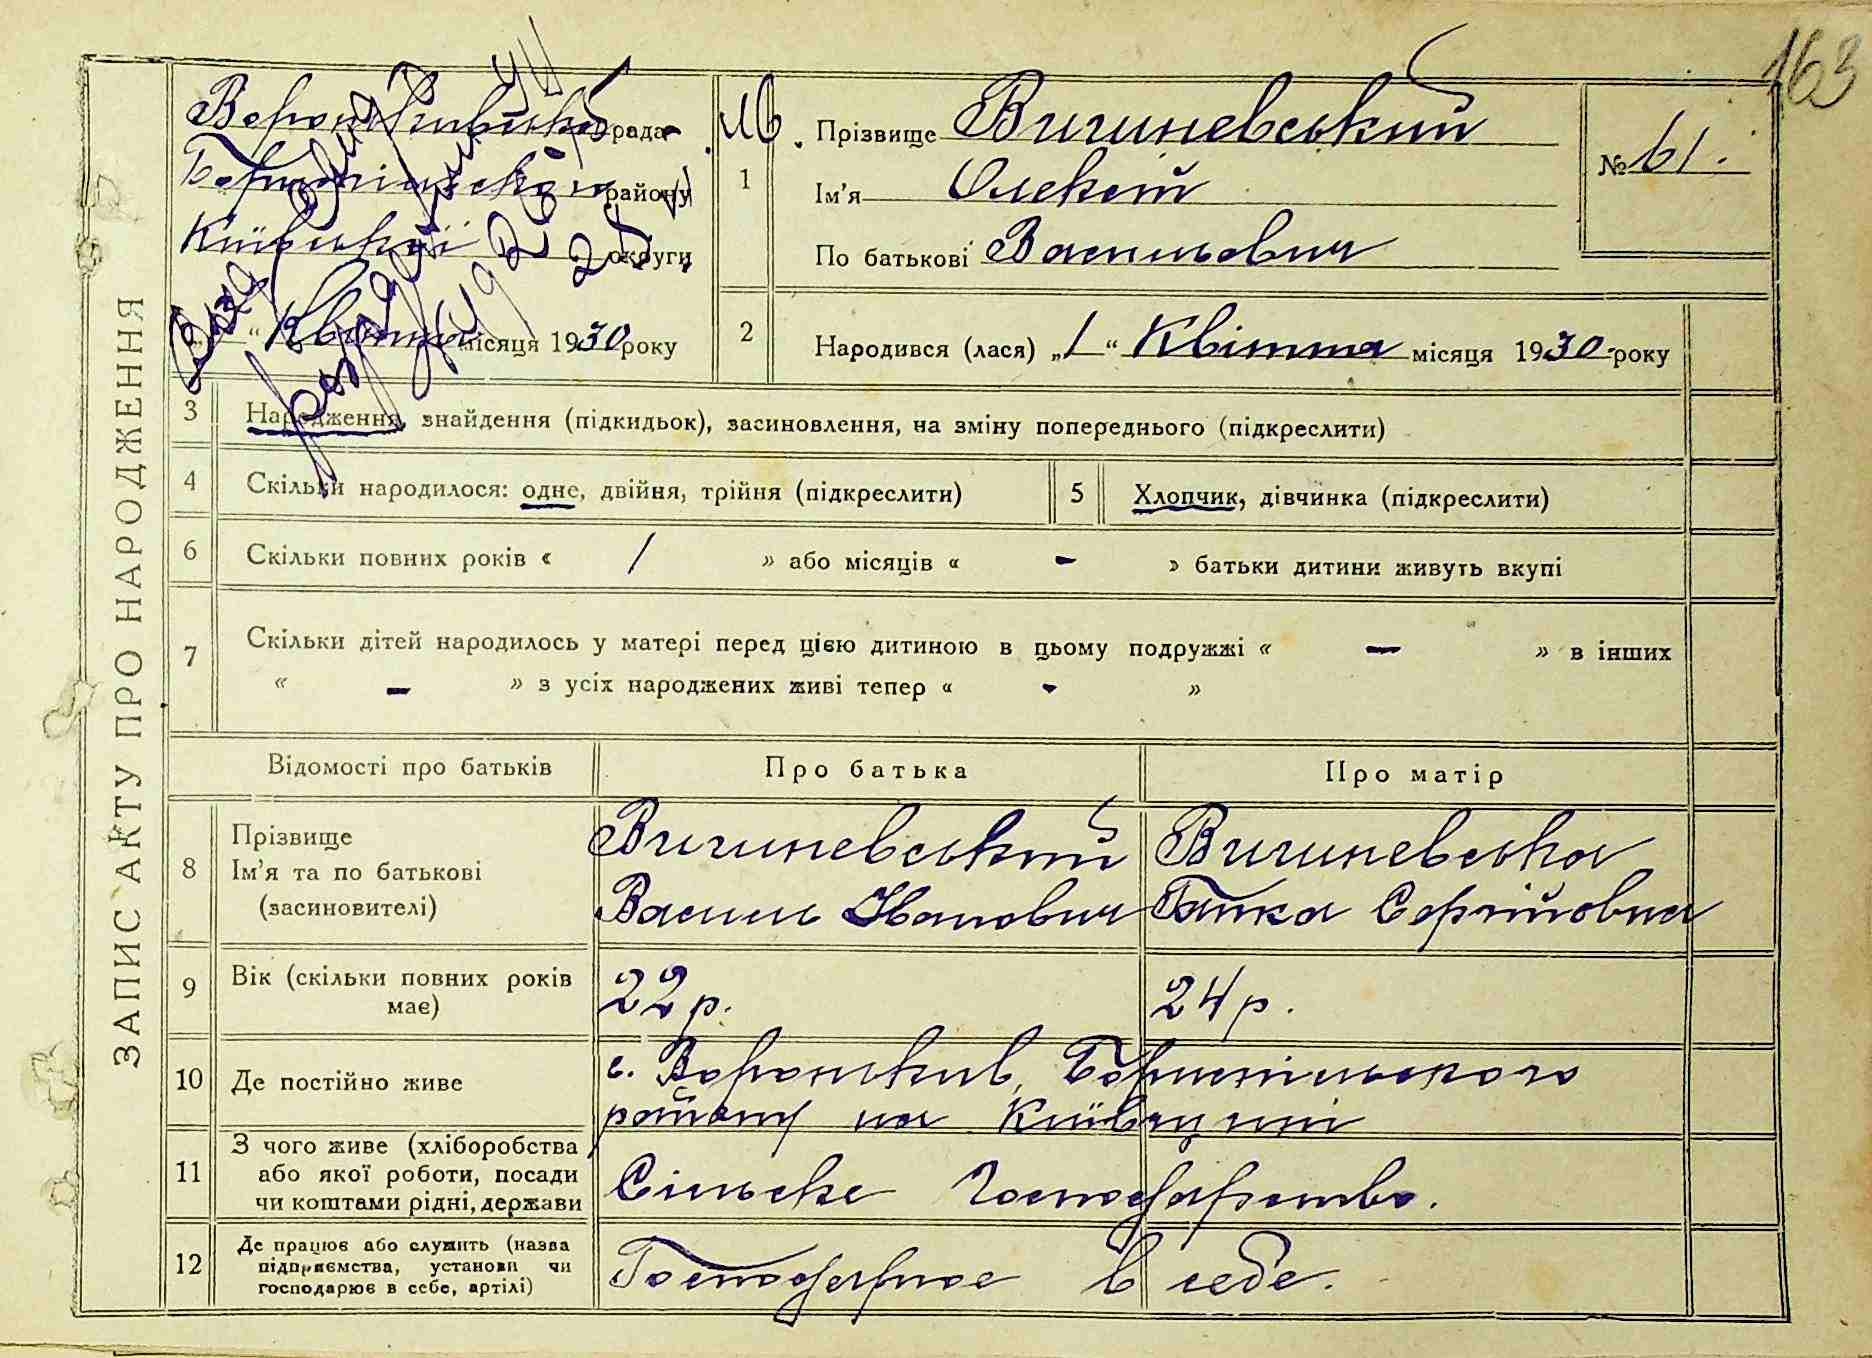 163
Вороньківська рада
Бориспільского району
Київської округи
" Квітня місяця 1930 року
Прізвище Вишневський
1
Ім'я Олексій
По батькові Васильович
№ 61.
2
Народився (лася) „1" Квітня місяця 1930 року
ЗАПИС АКТУ ПРО НАРОДЖЕННЯ
3 Народження, знайдення (підкидьок), засиновлення, на зміну попереднього (підкреслити)
4 Скільки народилося: одне, двійня, трійня (підкреслити) 5 Хлопчик, дівчинка (підкреслити)
6 Скільки повних років « 1 » або місяців « - » батьки дитини живуть вкупі
7 Скільки дітей народилось у матері перед цією дитиною в цьому подружжі « — » в інших
« - » з усіх народжених живі тепер « - »
Відомості про батьків Про батька Про матір
8 Прізвище
Ім'я та по батькові
(засиновителі)
Вишневський
Василь Іванович
Вишневська
Гапка Сергійовна
9 Вік (скільки повних років
має)
22 р. 24 р.
10 Де постійно живе
с. Вороньків, Бориспільського
району на Київщині
11 З чого живе (хліборобства
або якої роботи, посади
чи коштами рідні, держави
Сільське Господарство.
12 Де працює або служить (назва
підприємства, установи чи
господарює в себе, артілі)
Господарює в себе.